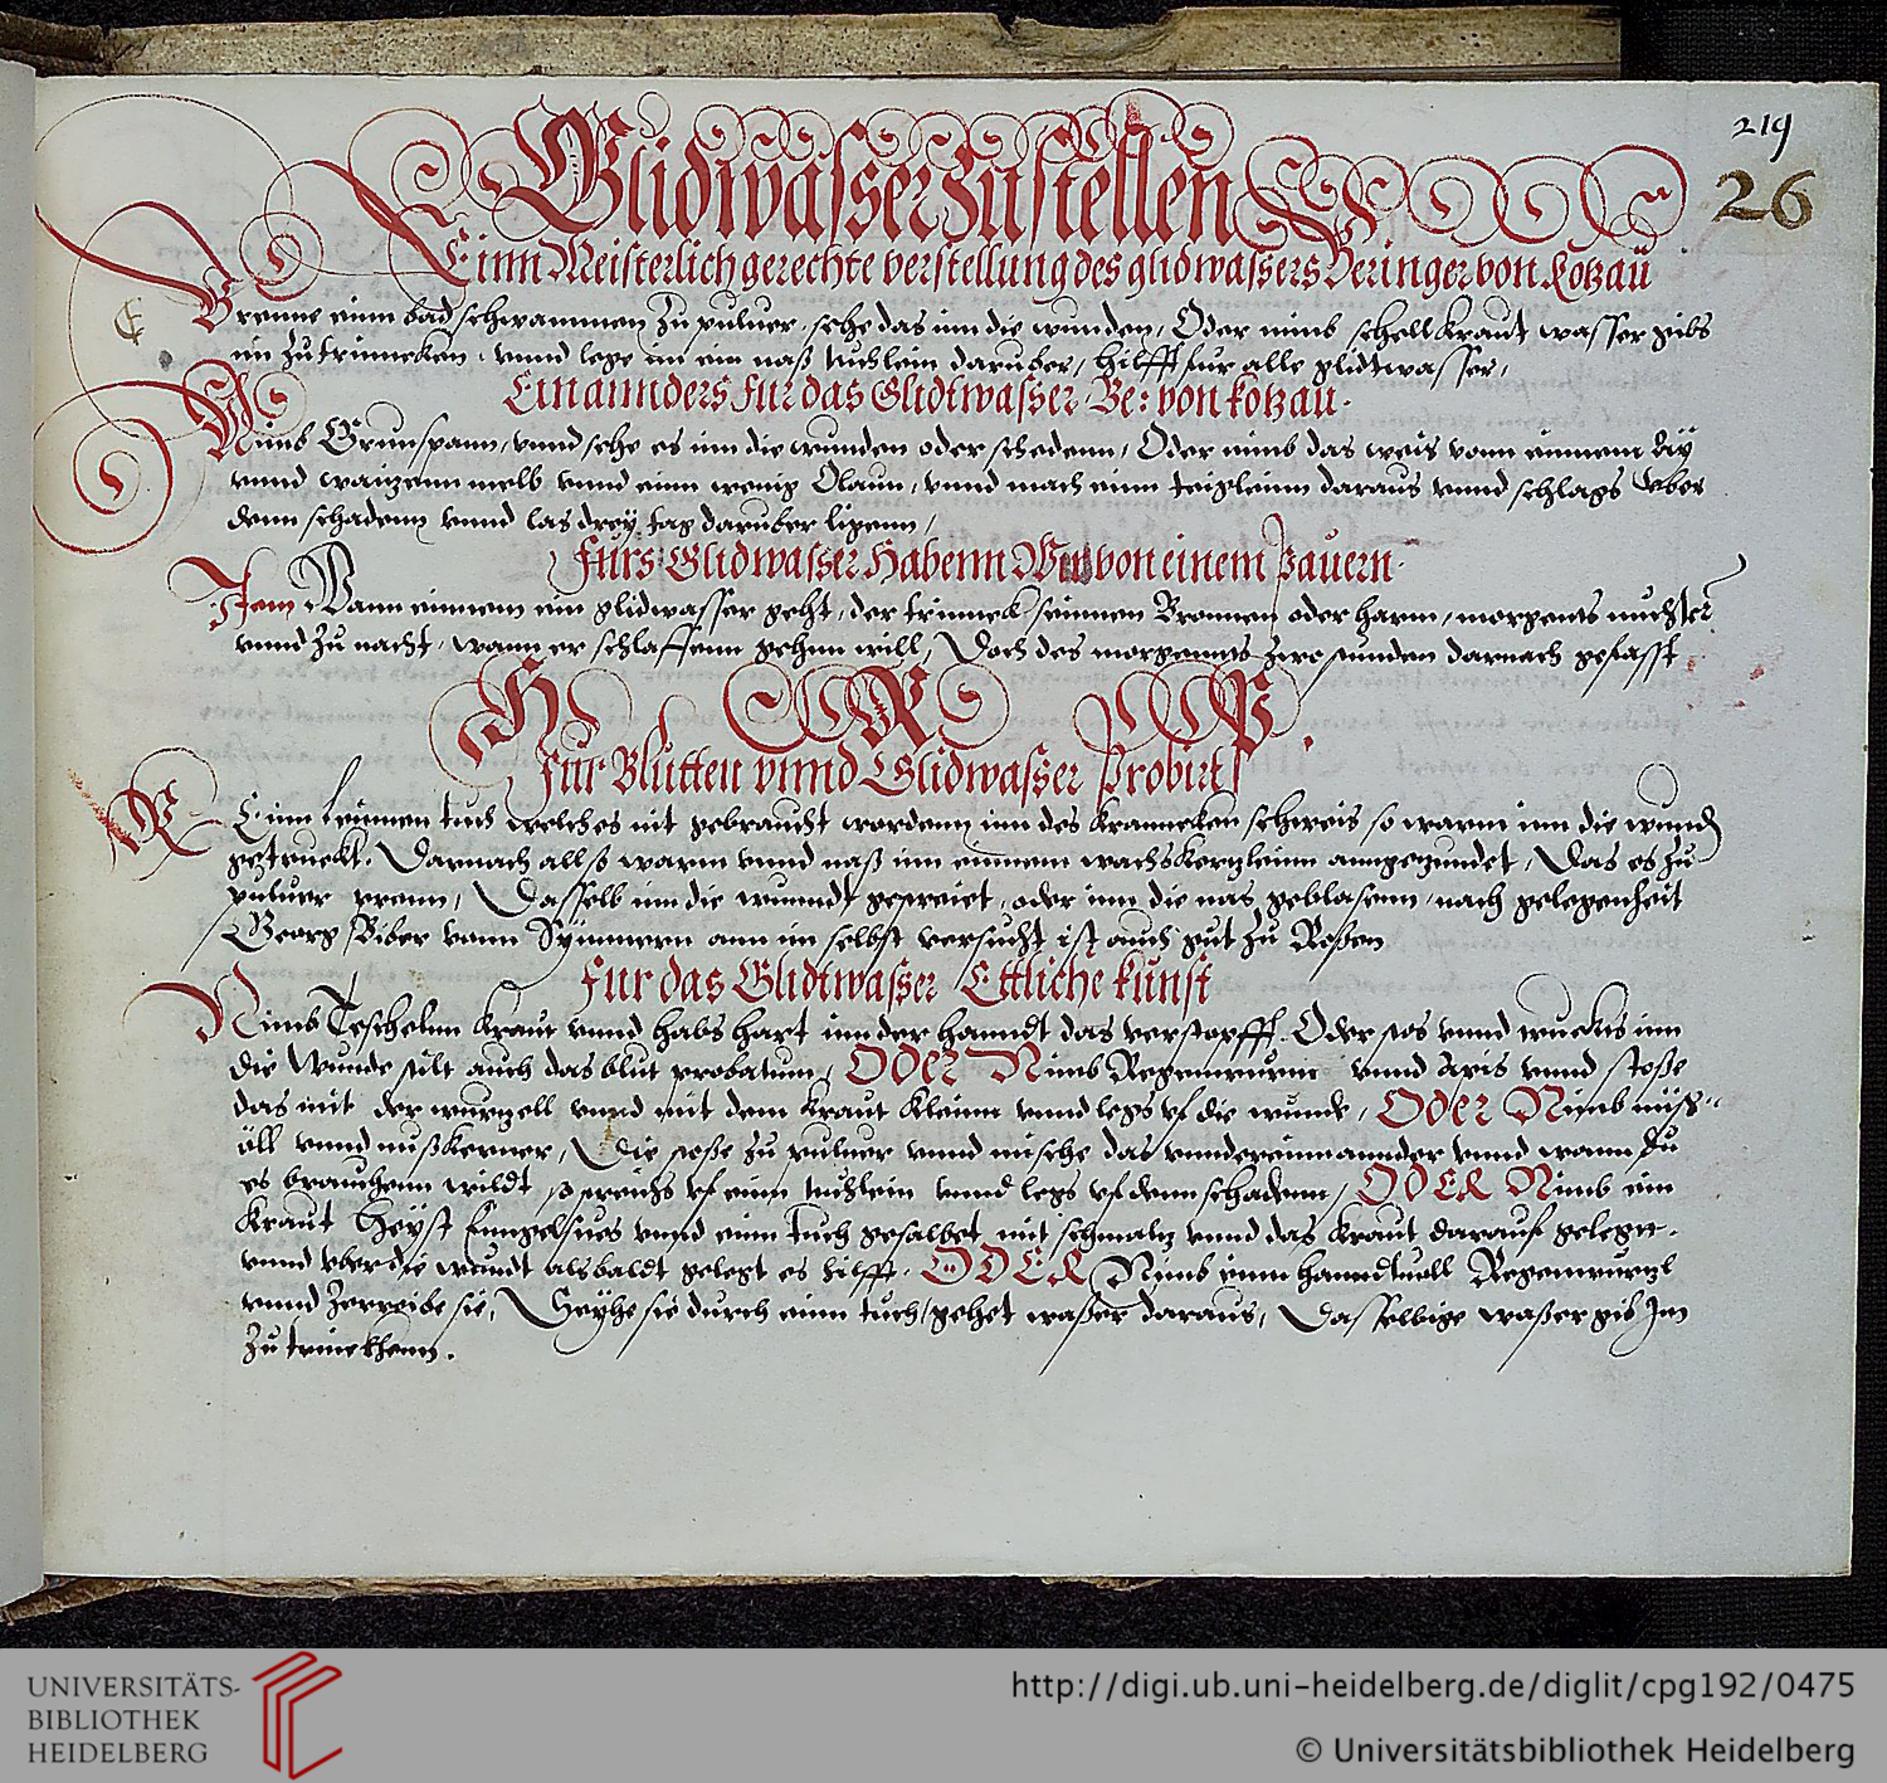 219
26
Glidwasser Zustellen
Einn Meisterlich gerechte verstellung des glidwassers Beringer von Kotzau
Brenne einn bad schwammen zu puluer, sehe das inn die wunden, Oder nimb schellkraut wasser gibs
im zu trinncken, vnnd lege im ein naß tuchlein daruber, hilfft fur alle glidtwasser,
Ein annders fur das Glidtwasser Be: von kotzau.
Nimb Grunspann, vnnd sehe es inn die wunden oder schedenn, Oder nimb das weis vonn einnem Aÿ
vnnd waizenn melb vnnd einn wenig Olaun, vnnd mach einn teigleinn daraus vnnd schlags vber
denn schadenn vnnd las dreÿ tag daruber ligenn,
furs Glidwasser Habenn Wir von einem Pauern.
Item Wann einnem ein glidwasser geht, der trinnck seinnen Bronnen oder harm, morgents nuchter
vnnd zu nacht, wann er schlaffenn gehnn will, Doch des morgennts zwo stunden darnach gefasst
H R P
fur Blutten vnnd Glidwasser Probirt
R Einn leinnen tuch welches nit gebraucht wordenn inn des kranncken schweis so warm inn die wund
getruckt. Darnach allso warm vnnd naß inn einnem wachskerzleinn anngezundet, Das es zu
puluer prenn, Dasselb inn die wunndt gespreiet, oder inn die nas geblasenn, nach gelegenheit
Georg Biber vonn Sÿmmern ann im selbst versucht ist auch gut zu Roßen
fur das Glidtwasser Ettliche kunst
Nimb Teschelnn kraut vnnd habs hart inn der hanndt das verstopfft. Oder stos vnnd truckhs inn
die Wunde stilt auch das blut probatum, Oder Nimb Regenwurm vnnd Apis vnnd stoße
das mit der wurzell vnnd mit dem kraut kleinn vnnd legs vf die wunde, Oder Nimb nuß-
öll vnnd nußkerner, Die stoße zu puluer vnnd mische das vnndereinnannder vnnd wann du
es brauchenn wildt so streichs vf einn tuchlein vnnd legs vf denn schadenn, ODER Nimb ein
kraut heÿst vnnd einn tuch gesalbet mit schmalz vnnd das kraut darauf gelegt.
vnnd vber die wundt alsbaldt gelegt es hilfft. ODER Nimb einn hanndtuoll Regenwurml
vnnd zerreibe sie, Seÿhe sie durch einn tuch, gehet waßer daraus, Dasselbige waßer gib Im
zu trinckhenn.
UNIVERSITÄTS-
BIBLIOTHEK
HEIDELBERG
http://digi.ub.uni-heidelberg.de/diglit/cpg192/0475
© Universitätsbibliothek Heidelberg